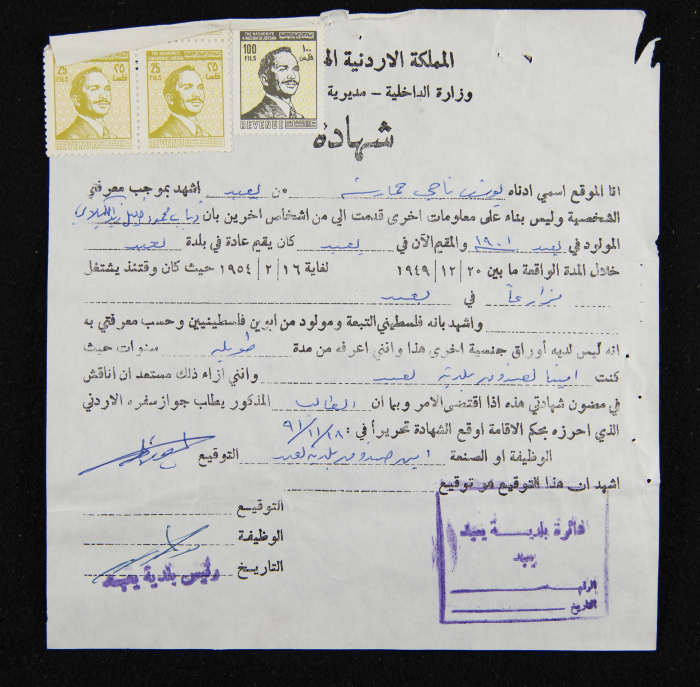 THE HASHEMITE KINGDOM OF JORDAN
25 FILS ٢٥ فلس
REVENUE
25 FILS ٢٥ فلس
REVENUE
THE HASHEMITE KINGDOM OF JORDAN
100 FILS ١٠٠ فلس
REVENUE
المملكة الاردنية
وزارة الداخلية - مديرية
شهادة
انا الموقع اسمي ادناه ناجي حمارشه من يعبد اشهد بموجب معرفتي
الشخصية وليس بناء على معلومات اخرى قدمت الي من اشخاص اخرين بان محمود الكيلاني
المولود في يعبد ١٩٠١ والمقيم الآن في يعبد كان يقيم عادة في بلدة يعبد
خلال المدة الواقعة ما بين ٢٠ / ١٢ / ١٩٤٩ لغاية ١٦ / ٢ / ١٩٥٤ حيث كان وقتئذ يشتغل
مزارعاً في يعبد
واشهد بانه فلسطيني التبعة ومولود من ابوين فلسطينيين وحسب معرفتي به
انه ليس لديه أوراق جنسية اخرى هذا وانني اعرفه من مدة طويله سنوات حيث
كنت امينا لصندوق بلدية يعبد وانني ازاء ذلك مستعد ان اناقش
في مضمون شهادتي هذه اذا اقتضى الامر وبما ان الطالب المذكور يطلب جواز سفره الاردني
الذي احرزه بحكم الاقامة اوقع الشهادة تحريراً في : ٩١/١١/١٨
الوظيفة او الصنعة امين صندوق بلدية يعبد التوقيع
اشهد ان هذا التوقيع هو توقيع
التوقيع
الوظيفة
التاريخ
رئيس بلدية يعبد
دائرة بلدية يعبد
يعبد
الرقم
التاريخ